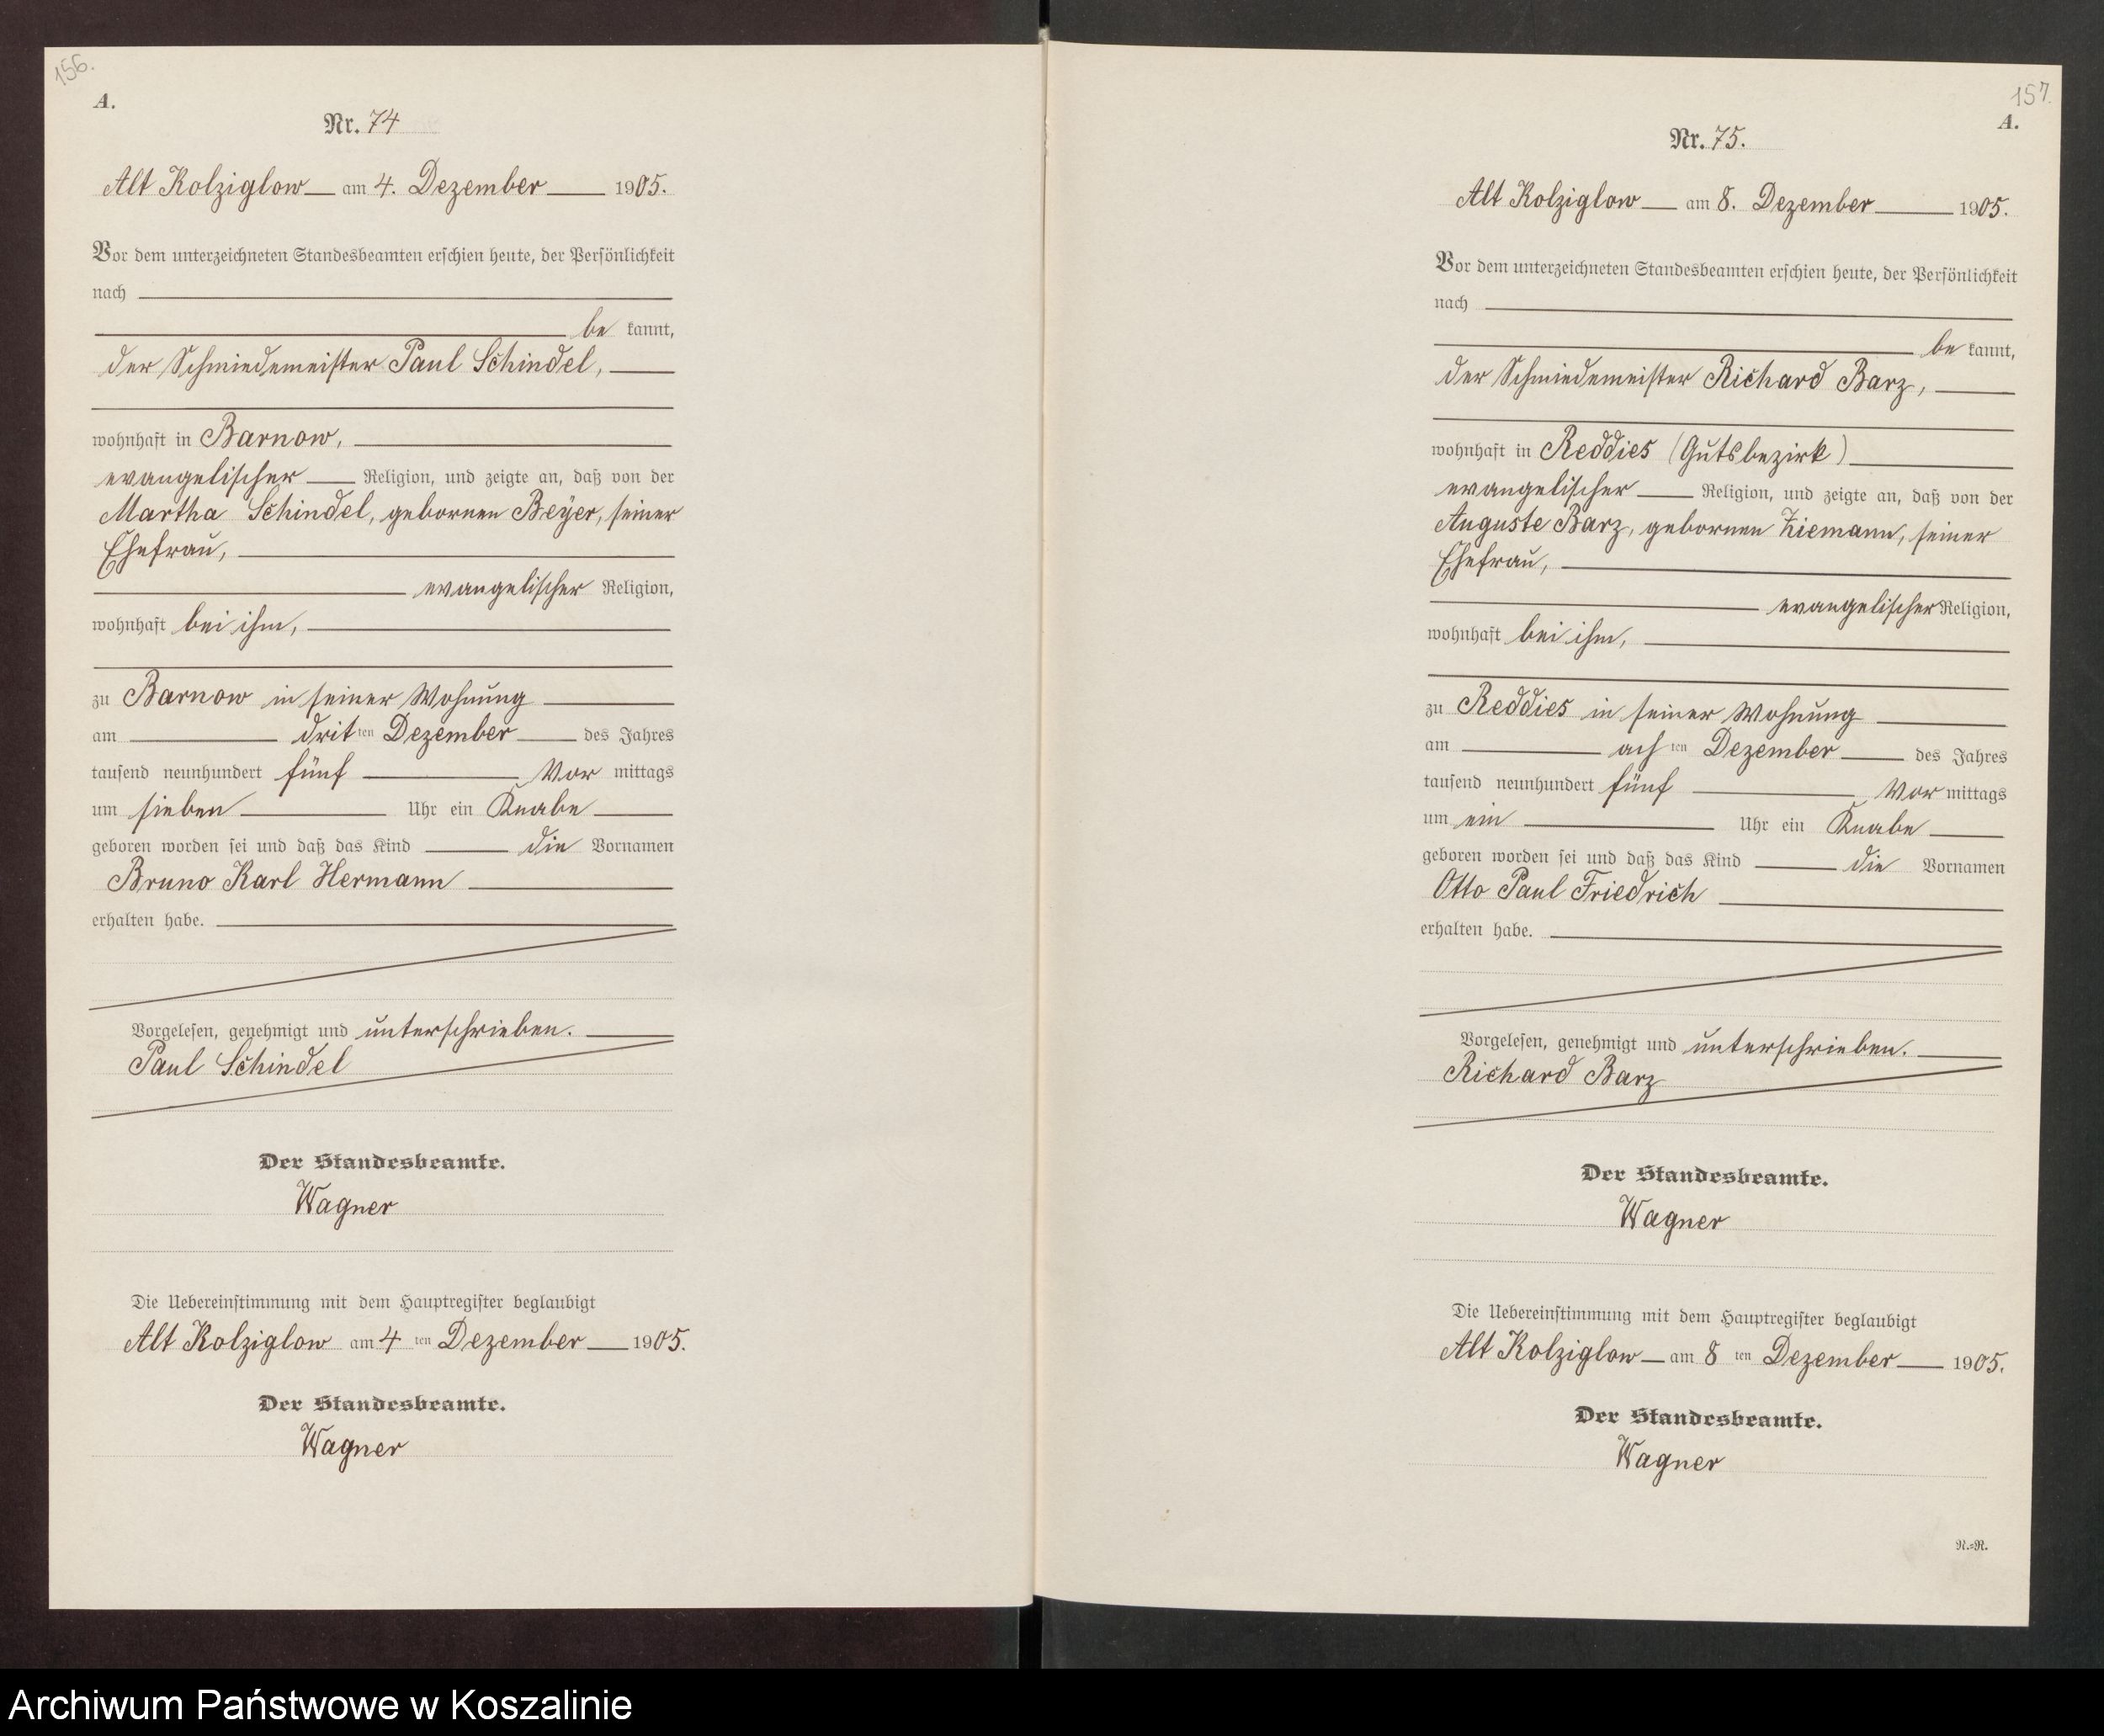 156.
A.
Nr. 74
Alt Kolziglow am 4. Dezember 1905.
Vor dem unterzeichneten Standesbeamten erschien heute, der Persönlichkeit
nach
be kannt,
der Schmiedemeister Paul Schindel,
wohnhaft in Barnow,
evangelischer Religion, und zeigte an, daß von der
Martha Schindel, gebornen Beyer, seiner
Ehefrau,
evangelischer Religion,
wohnhaft bei ihm,
zu Barnow in seiner Wohnung
am dritten Dezember des Jahres
tausend neunhundert fünf Vor mittags
um sieben Uhr ein Knabe
geboren worden sei und daß das Kind die Vornamen
Bruno Karl Hermann
erhalten habe.
Vorgelesen, genehmigt und unterschrieben.
Paul Schindel
Der Standesbeamte.
Wagner
Die Uebereinstimmung mit dem Hauptregister beglaubigt
Alt Kolziglow am 4 ten Dezember 1905.
Der Standesbeamte.
Wagner
157.
A.
Nr. 75.
Alt Kolziglow am 8. Dezember 1905.
Vor dem unterzeichneten Standesbeamten erschien heute, der Persönlichkeit
nach
be kannt,
der Schmiedemeister Richard Barz,
wohnhaft in Reddies (Gutsbezirk)
evangelischer Religion, und zeigte an, daß von der
Auguste Barz, gebornen Ziemann, seiner
Ehefrau,
evangelischer Religion,
wohnhaft bei ihm,
zu Reddies in seiner Wohnung
am achten Dezember des Jahres
tausend neunhundert fünf Vor mittags
um ein Uhr ein Knabe
geboren worden sei und daß das Kind die Vornamen
Otto Paul Friedrich
erhalten habe.
Vorgelesen, genehmigt und unterschrieben.
Richard Barz
Der Standesbeamte.
Wagner
Die Uebereinstimmung mit dem Hauptregister beglaubigt
Alt Kolziglow am 8 ten Dezember 1905.
Der Standesbeamte.
Wagner
N.=N.
Archiwum Państwowe w Koszalinie